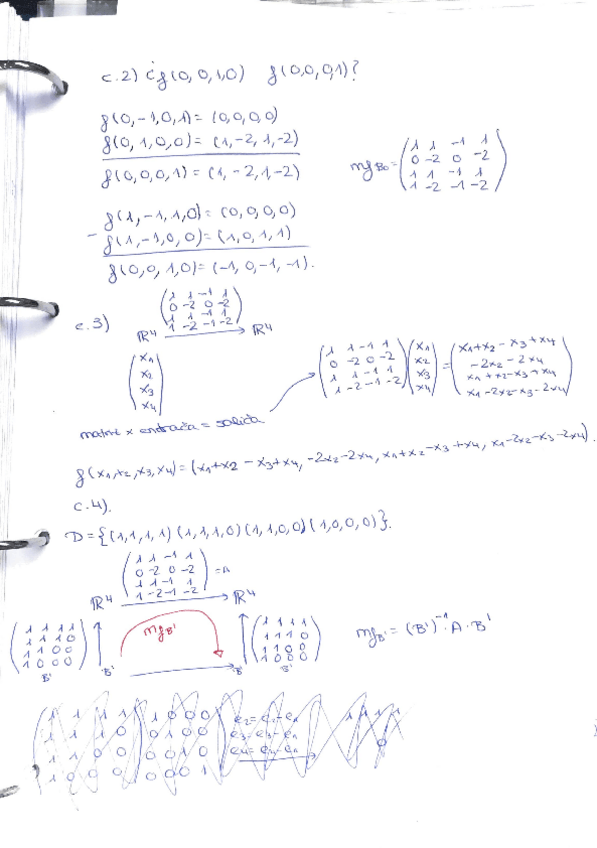 c.2) ¿f(0,0,1,0) f(0,0,0,1)?
f(0,-1,0,1)= (0,0,0,0)
f(0,1,0,0)= (1,-2,1,-2)
f(0,0,0,1)= (1,-2,1,-2)
mfB0=
1 1 -1 1
0 -2 0 -2
1 1 -1 1
1 -2 -1 -2
f(1,-1,1,0)= (0,0,0,0)
- f(1,-1,0,0)= (1,0,1,1)
f(0,0,1,0)= (-1,0,-1,-1).
c.3)
1 1 -1 1
0 -2 0 -2
1 1 -1 1
1 -2 -1 -2
ℝ4 → ℝ4
x1
x2
x3
x4
1 1 -1 1
0 -2 0 -2
1 1 -1 1
1 -2 -1 -2
x1
x2
x3
x4
=
x1+x2-x3+x4
-2x2-2x4
x1+x2-x3+x4
x1-2x2-x3-2x4
matriz x entrada = salida
f(x1,x2,x3,x4)= (x1+x2-x3+x4, -2x2-2x4, x1+x2-x3+x4, x1-2x2-x3-2x4).
c.4).
D={(1,1,1,1) (1,1,1,0) (1,1,0,0) (1,0,0,0)}.
1 1 -1 1
0 -2 0 -2
1 1 -1 1
1 -2 -1 -2
=A
ℝ4 → ℝ4
1 1 1 1
1 1 1 0
1 1 0 0
1 0 0 0
B'
B'
mfB'
B'
1 1 1 1
1 1 1 0
1 1 0 0
1 0 0 0
B'
mfB'= (B')-1·A·B'
1 1 1 1 1 0 0 0
1 1 1 0 0 1 0 0
1 1 0 0 0 0 1 0
1 0 0 0 0 0 0 1
e2=e2-e1
e3=e3-e1
e4=e4-e1
1 1 1 1
0